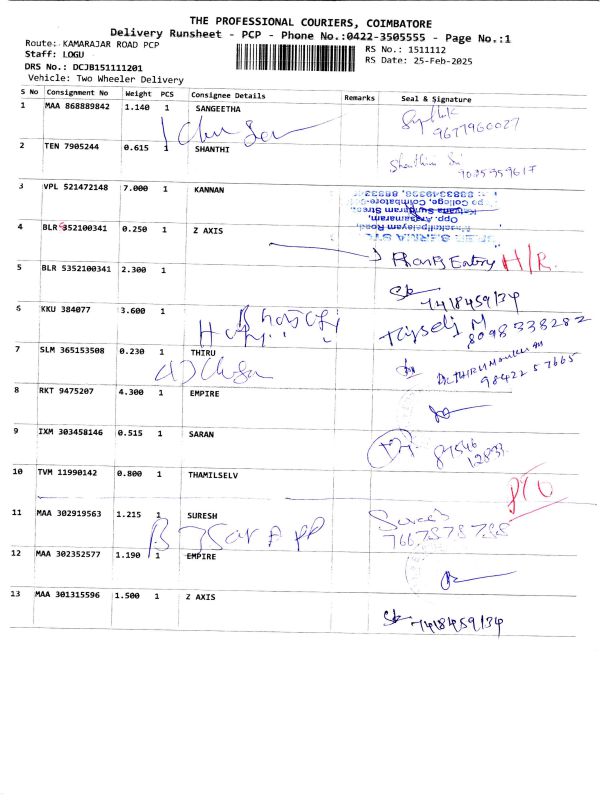 THE PROFESSIONAL COURIERS, COIMBATORE
Delivery Runsheet - PCP - Phone No.:0422-3505555 - Page No.:1
Route: KAMARAJAR ROAD PCP
Staff: LOGU
DRS No.: DCJB151111201
Vehicle: Two Wheeler Delivery
RS No.: 1511112
RS Date: 25-Feb-2025
S No Consignment No Weight PCS Consignee Details Remarks Seal & Signature
1 MAA 868889842 1.140 1 SANGEETHA
9677960027
2 TEN 7905244 0.615 1 SHANTHI
3 VPL 521472148 7.000 1 KANNAN
4 BLR 5352100341 0.250 1 Z AXIS
H/R
5 BLR 5352100341 2.300 1
7418459134
6 KKU 384077 3.600 1
8098338282
7 SLM 365153508 0.230 1 THIRU
98422 57665
8 RKT 9475207 4.300 1 EMPIRE
9 IXM 303458146 0.515 1 SARAN
10 TVM 11990142 0.800 1 THAMILSELV
PTO
11 MAA 302919563 1.215 1 SURESH
7667878788
12 MAA 302352577 1.190 1 EMPIRE
13 MAA 301315596 1.500 1 Z AXIS
7418459134